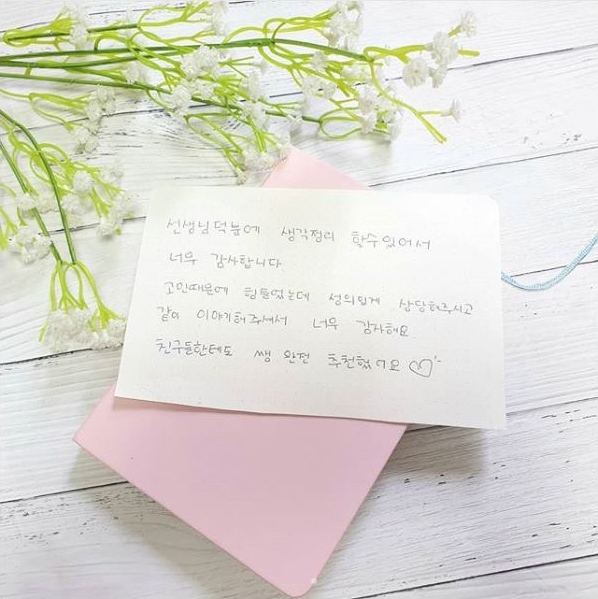 선생님덕분에 생각정리 할수있어서
너무 감사합니다.
고민때문에 힘들었는데 성의있게 상담해주시고
같이 이야기해주셔서 너무 감사해요
친구들한테도 쌤 완전 추천했어요♡